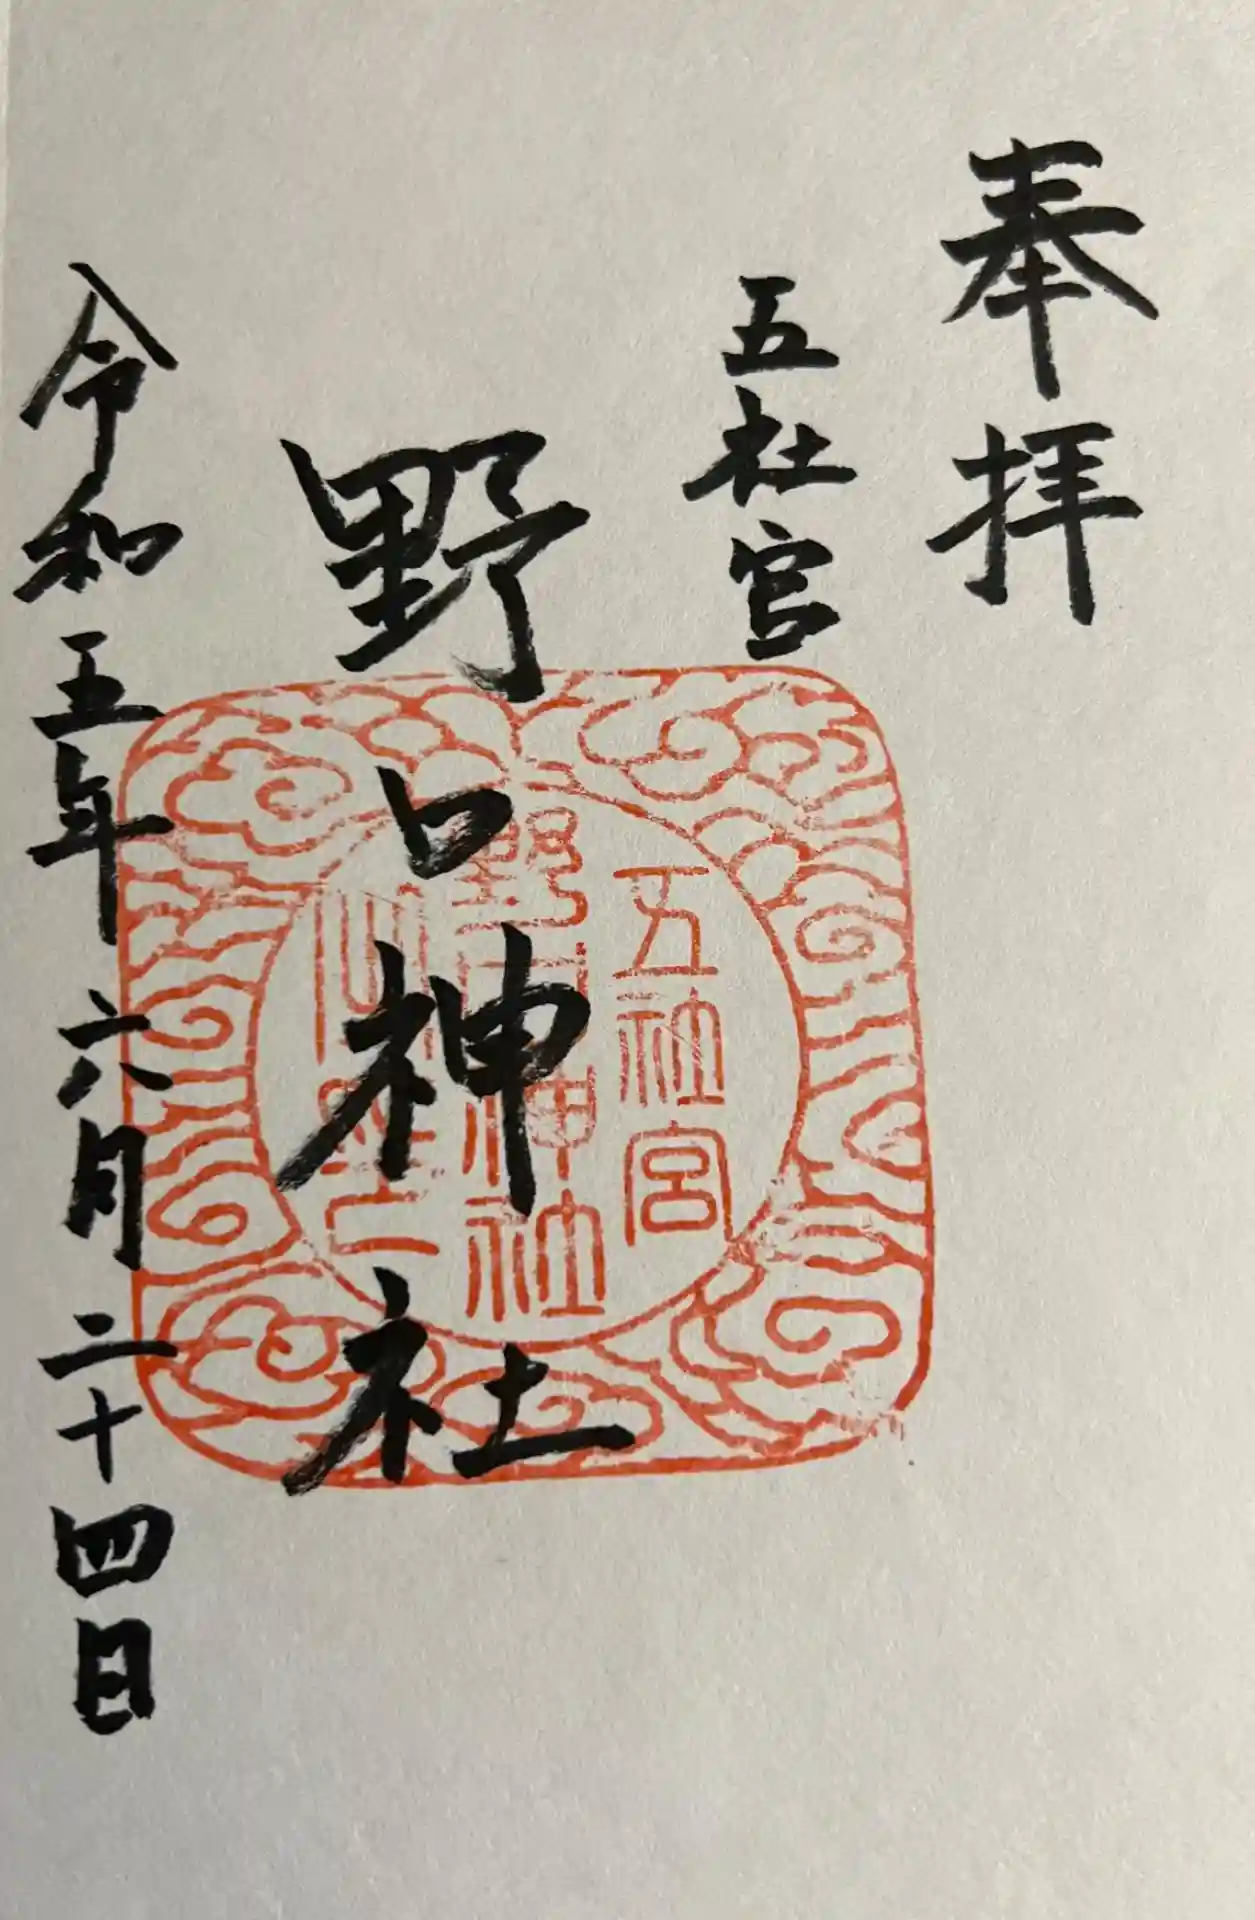 奉拝
五社宮
野口神社
令和五年六月二十四日
五社宮
野口神社